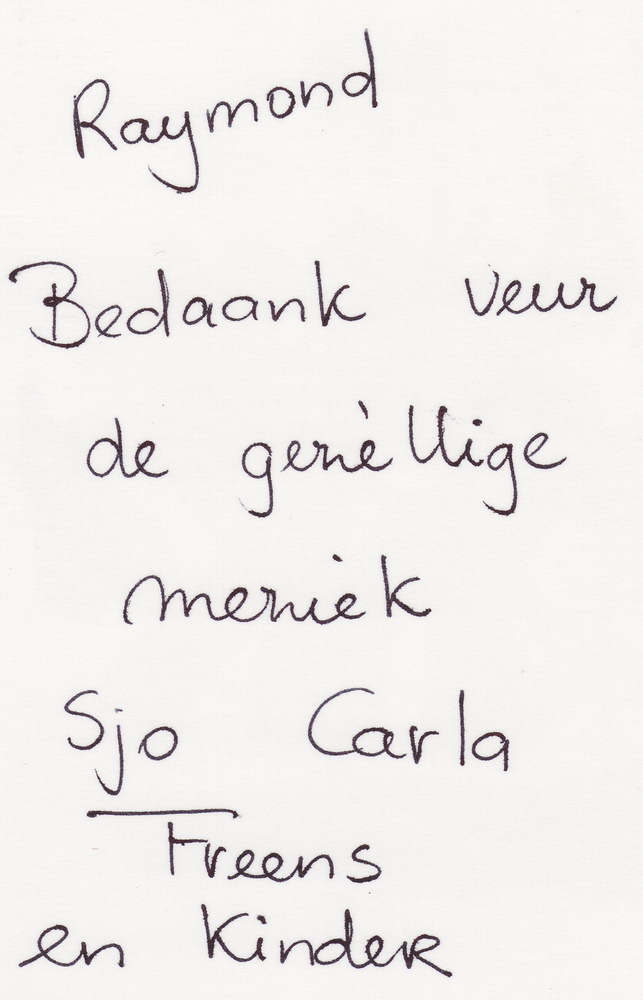 Raymond
Bedaank veur
de gezèllige
meziek
Sjo Carla
Freens
en Kinder